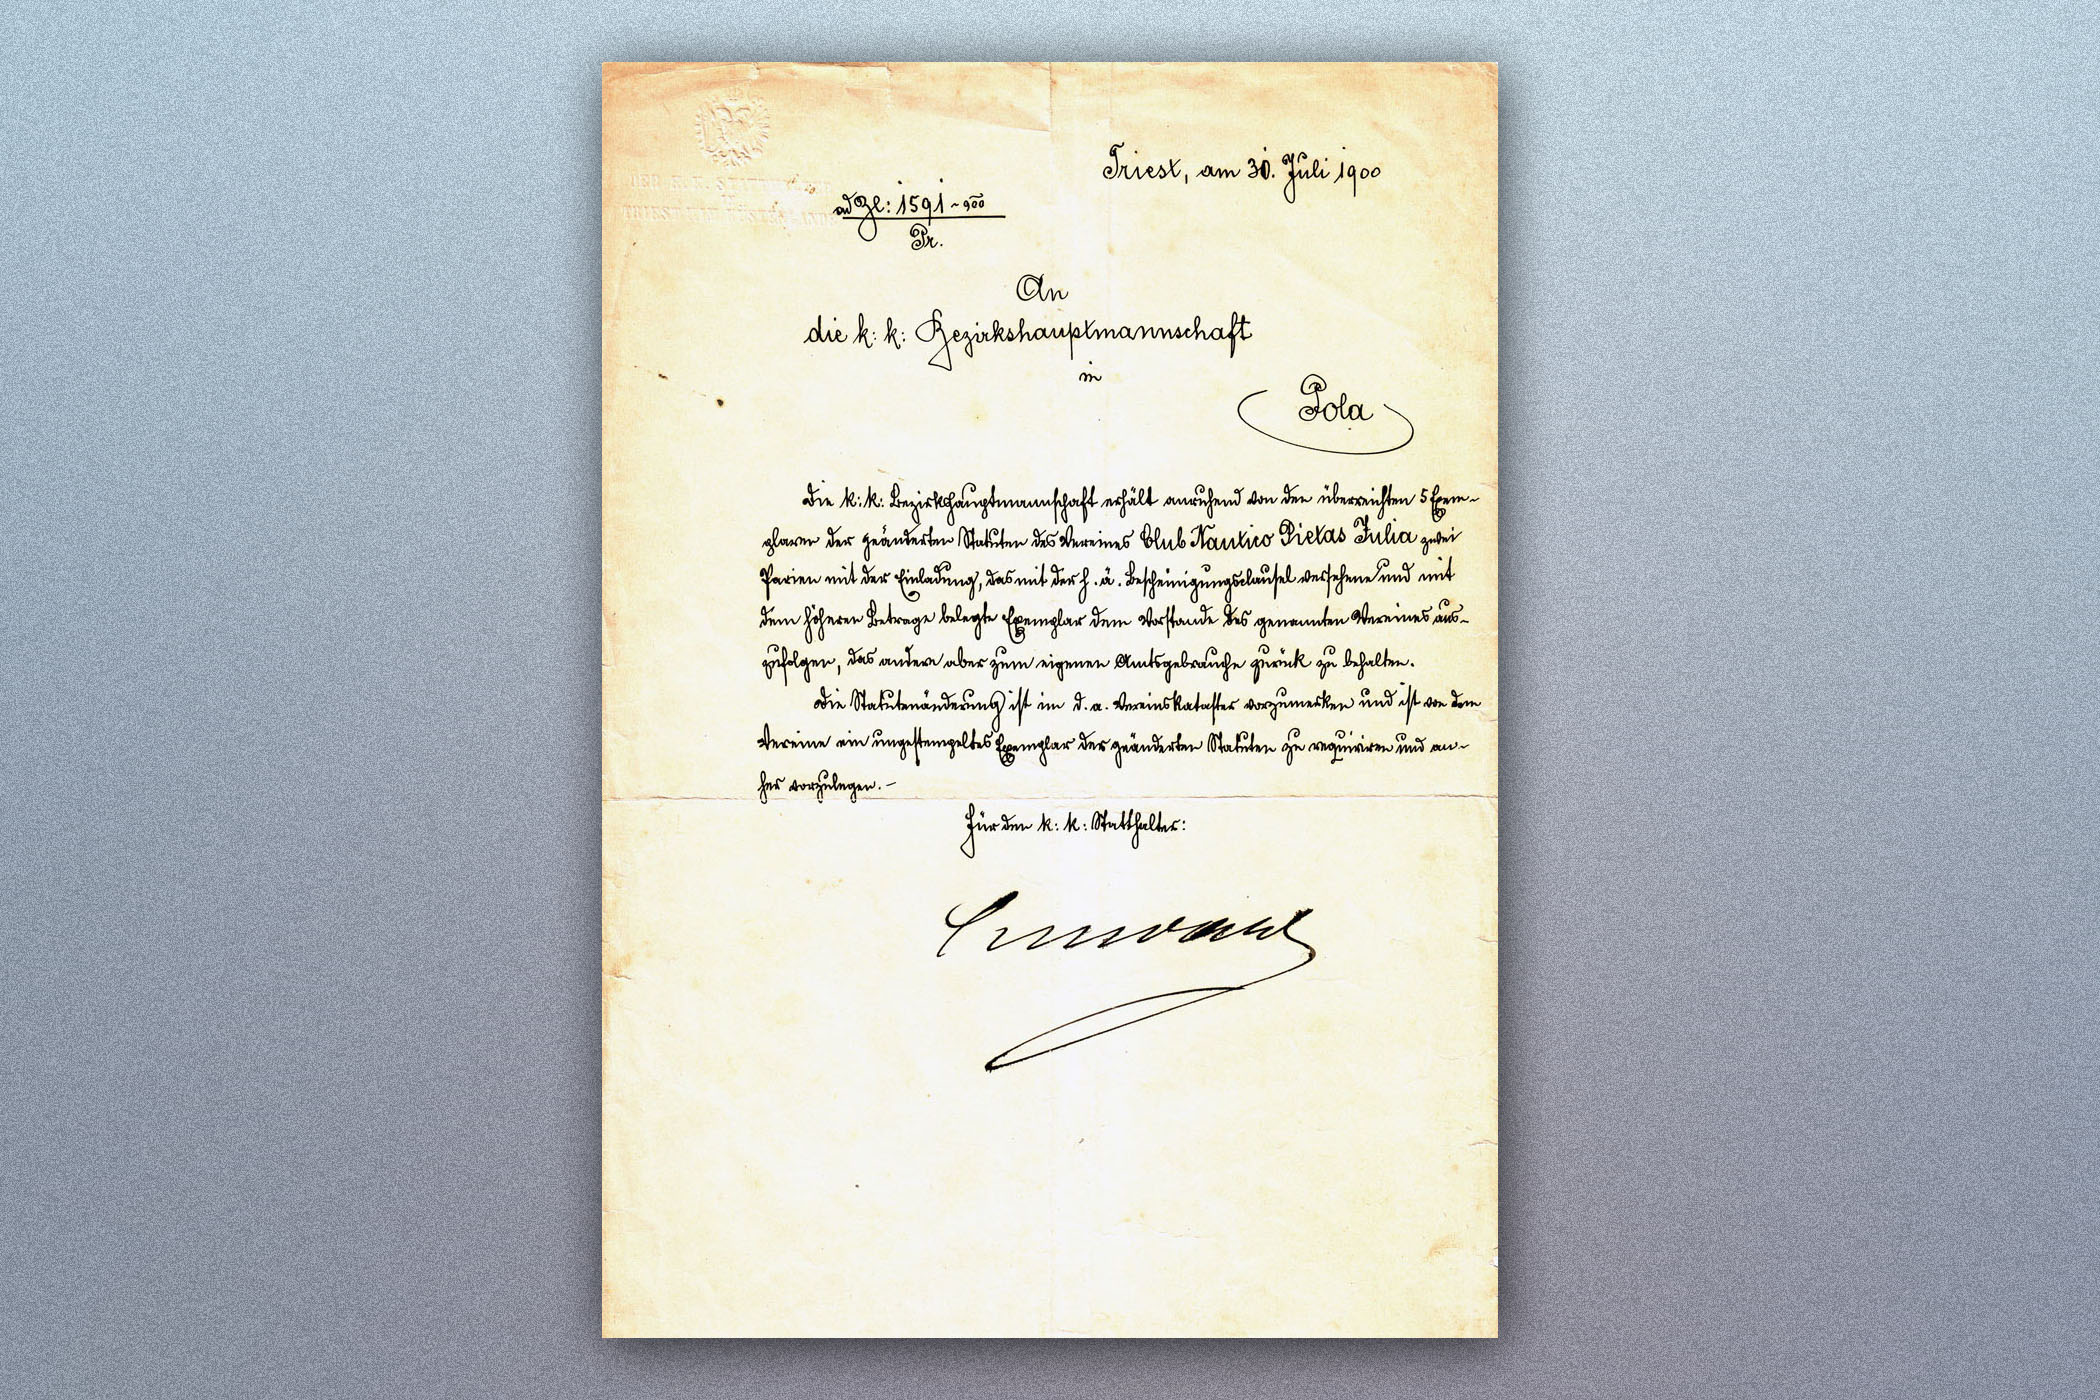 DER K. K. STATTHALTER
TRIEST UND KÜSTENLANDE
Triest, am 30. Juli 1900
ad Zl: 1591-900
Pr.
An
die k: k: Bezirkshauptmannschaft
in
Pola
Die k: k: Bezirkshauptmannschaft erhält anruhend von den überreichten 5 Exem-
plaren der geänderten Statuten des Vereines Club Nautico Pietas Julia zwei
Parien mit der Einladung, das mit der h. ä. Bescheinigungsclausel versehene und mit
dem höheren Betrage belegte Exemplar dem Vorstande des genannten Vereines aus-
zufolgen, das andere aber zum eigenen Amtsgebrauche zurück zu behalten.
Die Statutenänderung ist im d. a. Vereinskataster vorzumerken und ist von dem
Vereine ein ungestempeltes Exemplar der geänderten Statuten zu requiriren und an-
her vorzulegen. -
Für den k: k: Statthalter: